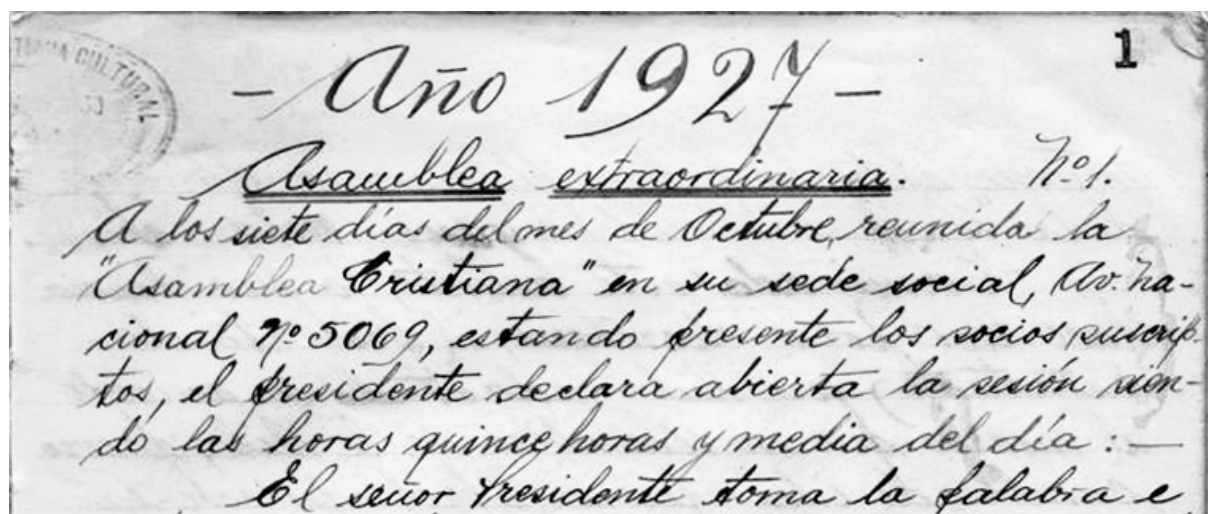 CULTURAL
1
- Año 1927 -
Asamblea extraordinaria. Nº 1.
A los siete días del mes de Octubre, reunida la
"Asamblea Cristiana" en su sede social, Av. Na-
cional Nº 5069, estando presente los socios suscrip-
tos, el presidente declara abierta la sesión sien-
do las horas quince horas y media del día : —
El señor Presidente toma la palabra e